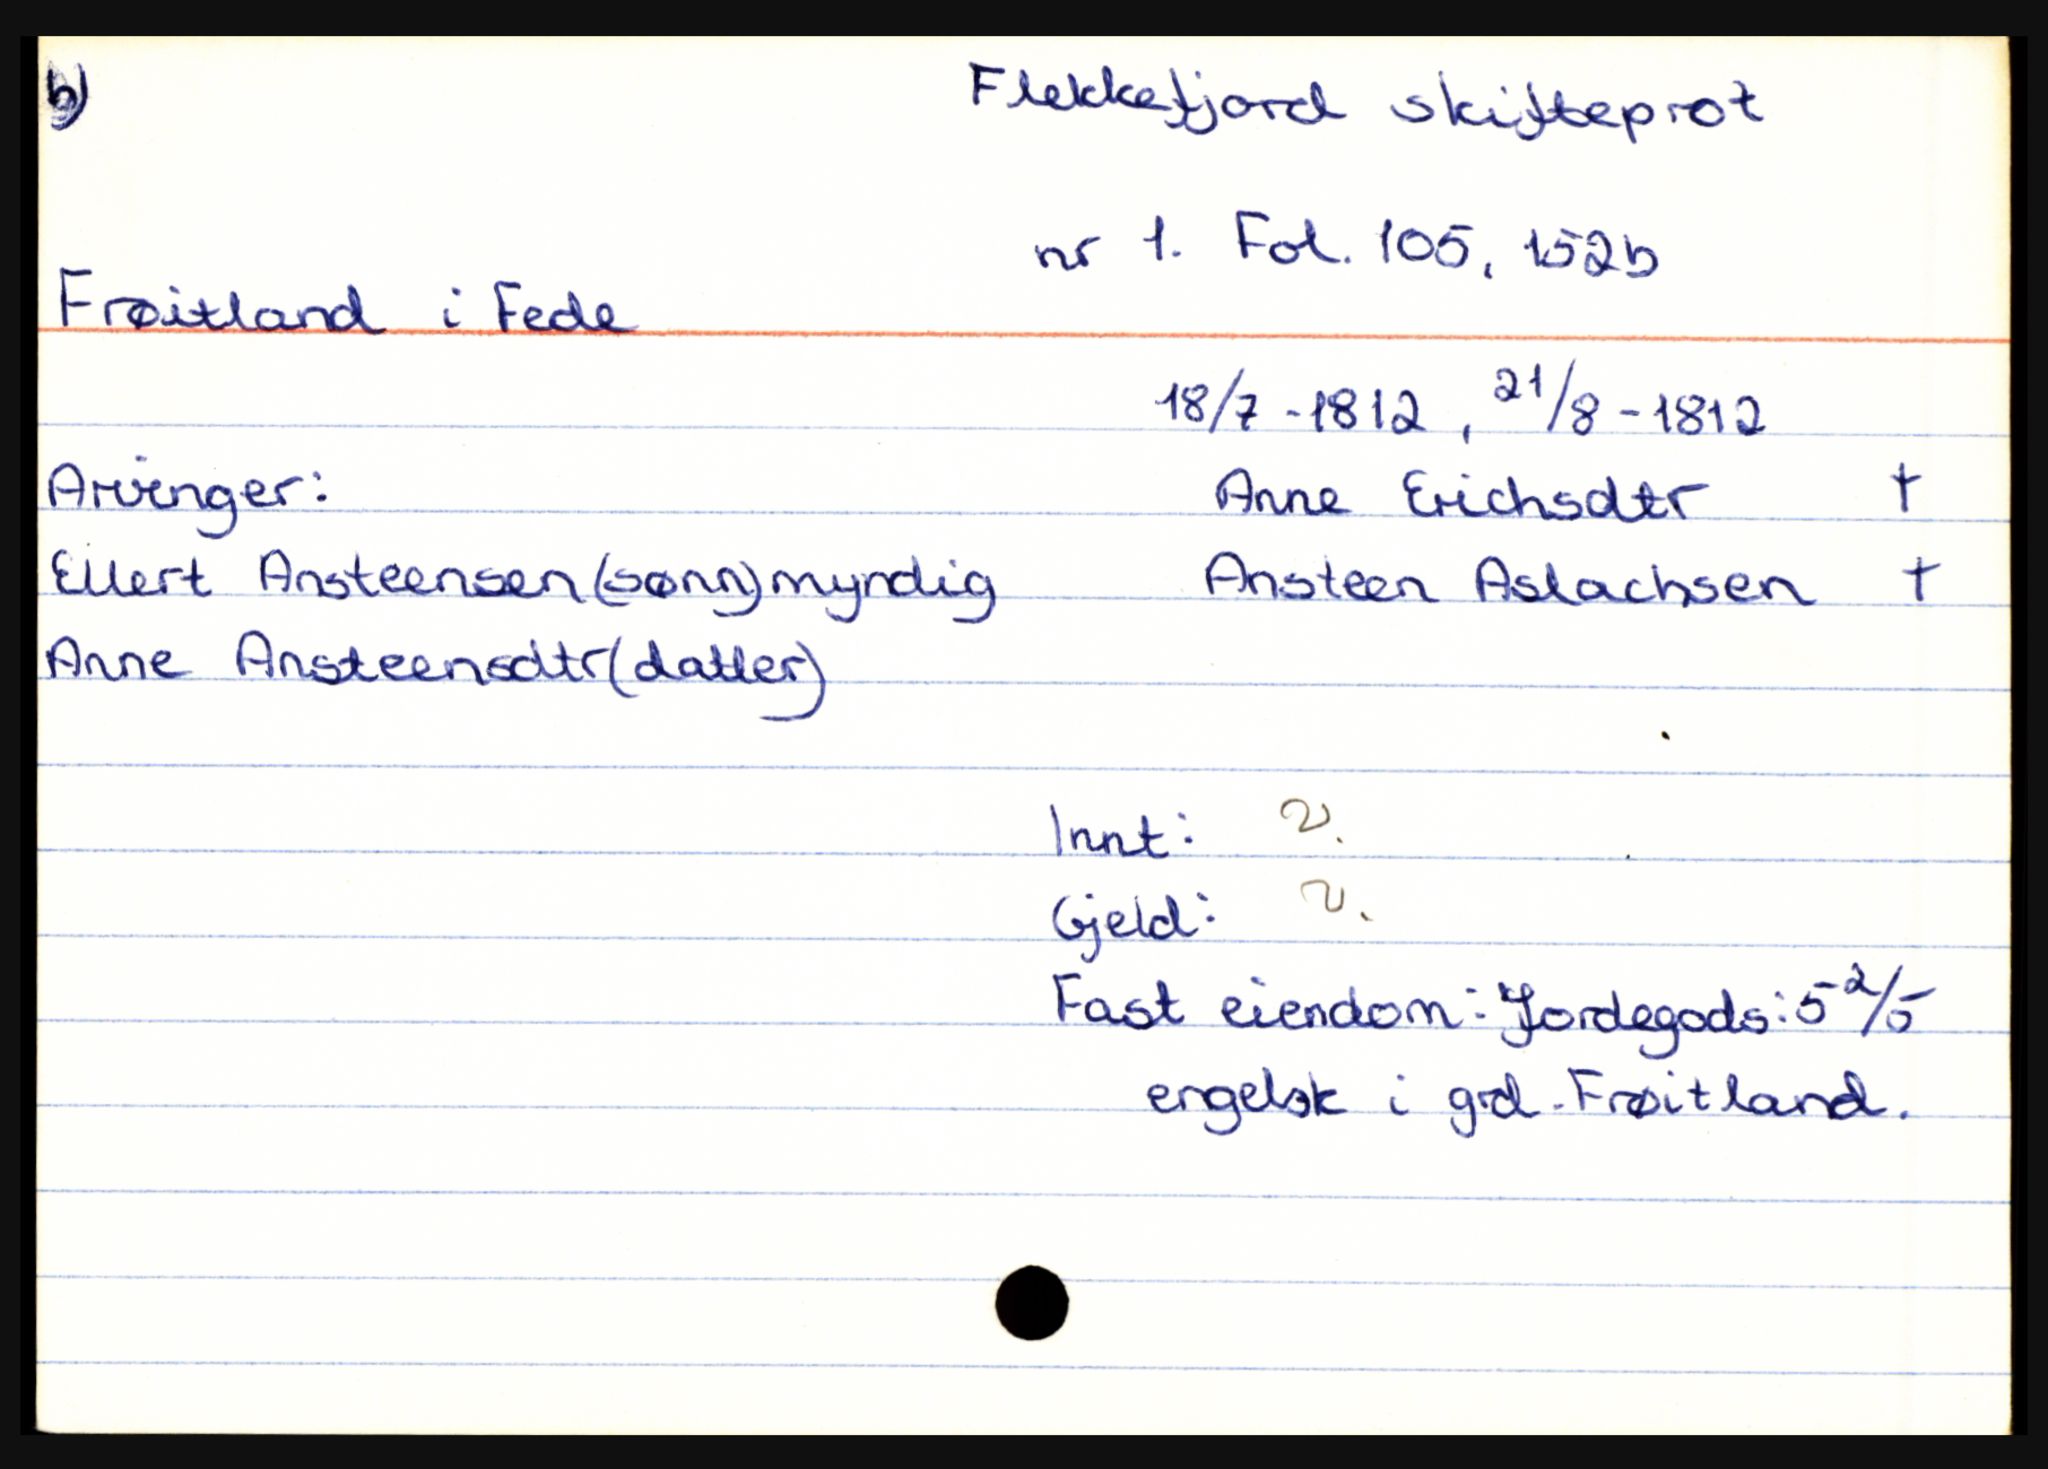 b)
Flekkefjord skifteprot
nr 1. Fol. 105, 152b
Frøitland i Fede
18/7 - 1812, 21/8 - 1812
Arvinger:
Anne Erichsdtr †
Ellert Ansteensen (sønn) myndig
Ansteen Aslachsen †
Anne Ansteensdtr (datter)
Innt:
Gjeld:
Fast eiendom: Jordegods: 5 2/5
engelsk i grd. Frøitland.